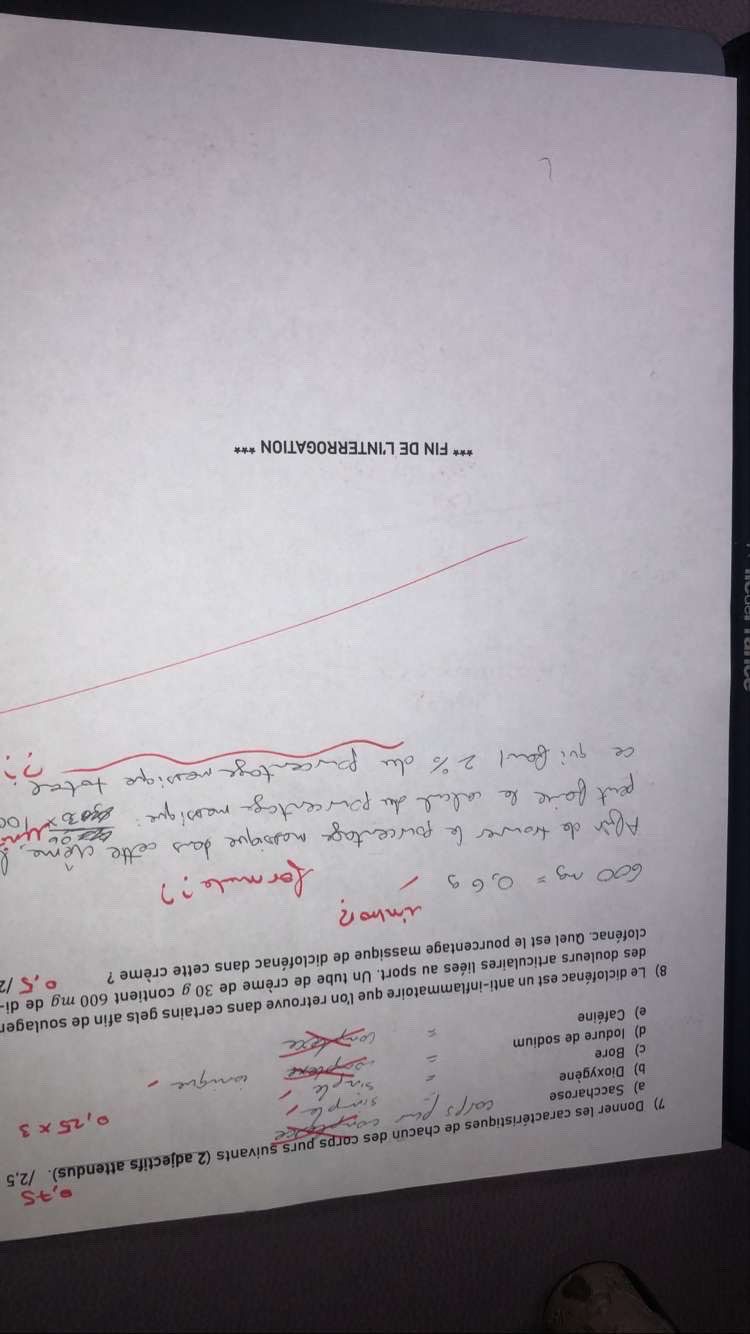 0,75
7) Donner les caractéristiques de chacun des corps purs suivants (2 adjectifs attendus). /2,5
a) Saccharose corps pur complexe
0,25 x 3
b) Dioxygène = simple
c) Bore = simple
d) Iodure de sodium = complexe ionique
e) Caféine = complexe
8) Le diclofénac est un anti-inflammatoire que l'on retrouve dans certains gels afin de soulager
des douleurs articulaires liées au sport. Un tube de crème de 30 g contient 600 mg de di-
clofénac. Quel est le pourcentage massique de diclofénac dans cette crème ? 0,5 /2
intro?
600 mg = 0,6 g formule ??
Afin de trouver le pourcentage massique dans cette crème,
peut faire le calcul du pourcentage massique: x 100
ce qui faut 2 % du pourcentage massique total.
??
*** FIN DE L'INTERROGATION ***